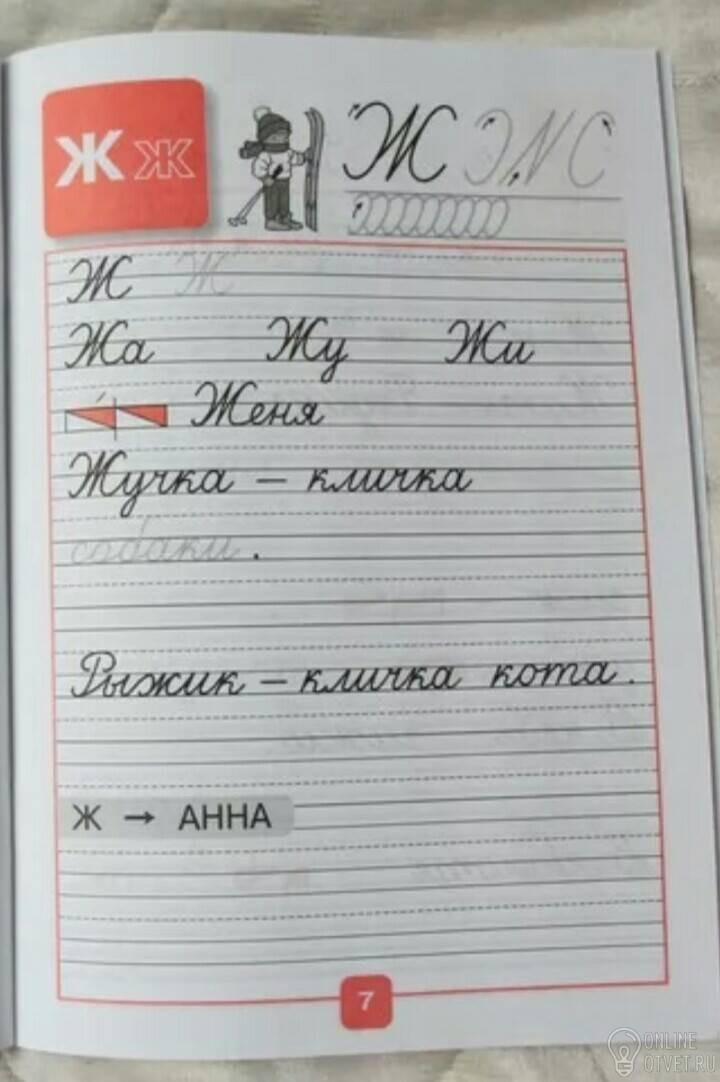 Ж ж Ж
Ж Ж
Жа Жу Жи
Женя
Жучка – кличка
собаки.
Рыжик – кличка кота.
Ж → АННА
7
ONLINE
OTVET.RU